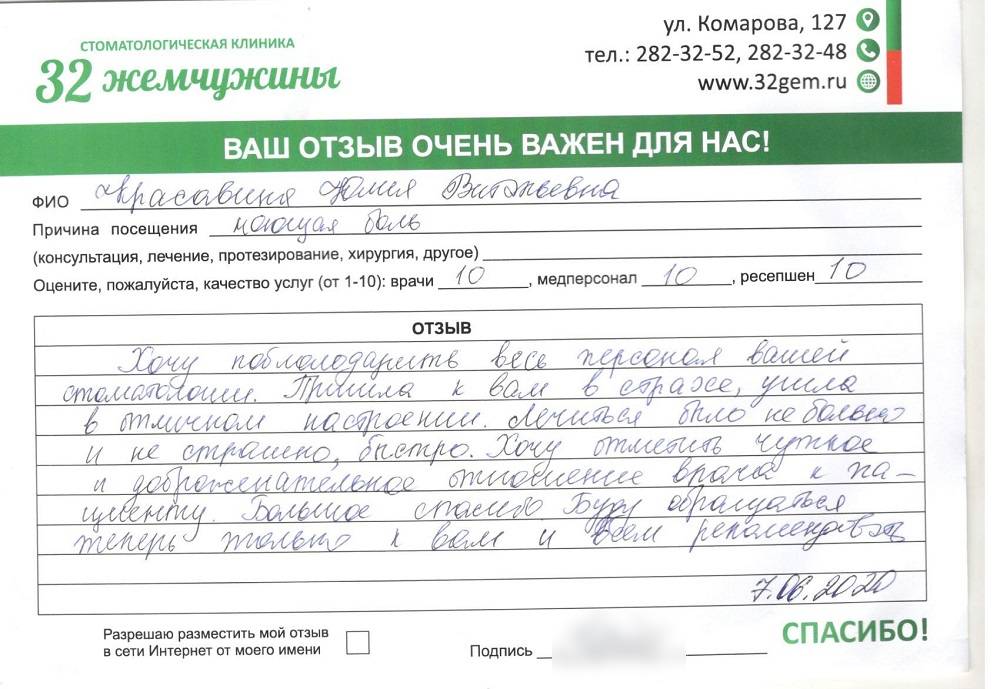 СТОМАТОЛОГИЧЕСКАЯ КЛИНИКА
32 жемчужины
ул. Комарова, 127
тел.: 282-32-52, 282-32-48
www.32gem.ru
ВАШ ОТЗЫВ ОЧЕНЬ ВАЖЕН ДЛЯ НАС!
ФИО Красавина Юлия Витальевна
Причина посещения ноющая боль
(консультация, лечение, протезирование, хирургия, другое)
Оцените, пожалуйста, качество услуг (от 1-10): врачи 10, медперсонал 10, ресепшен 10
ОТЗЫВ
Хочу поблагодарить весь персонал вашей
стоматологии. Пришла к вам в страхе, ушла
в отличном настроении. Лечиться было не больно
и не страшно, быстро. Хочу отметить чуткое
и доброжелательное отношение врача к па-
циенту. Большое спасибо Буду обращаться
теперь только к вам и всем рекомендовать
7.06.2020
Разрешаю разместить мой отзыв
в сети Интернет от моего имени
Подпись
СПАСИБО!